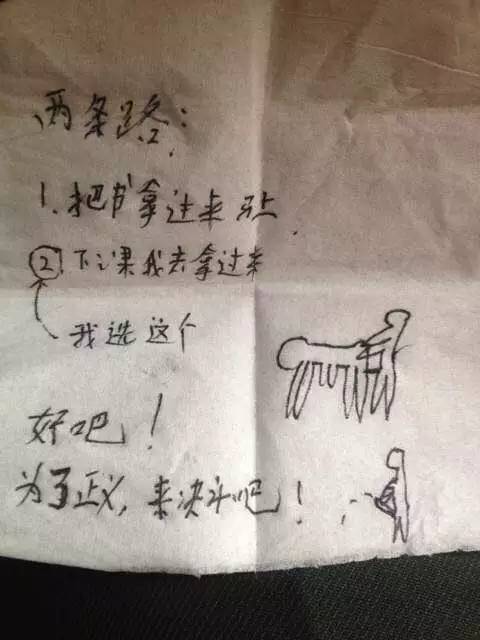 两条路：
1. 把书拿过来
②. 下课我去拿过来
我选这个
好吧！
为了正义，来决斗吧！